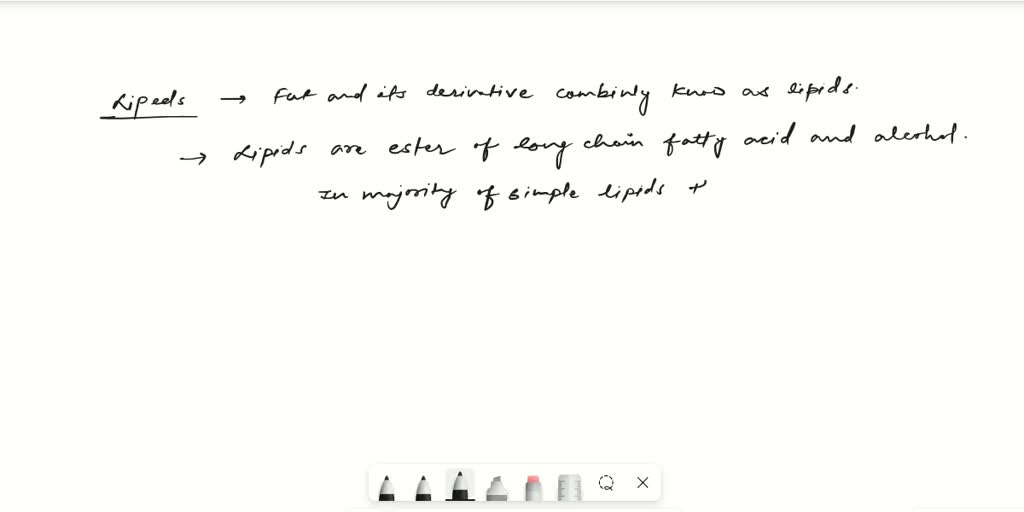 Lipeds → Fat and its derivative combinly know as lipids.
→ Lipids are ester of long chain fatty acid and alcohol.
In majority of simple lipids t